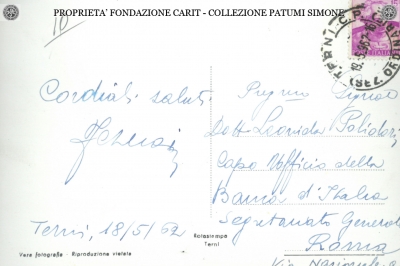 PROPRIETA' FONDAZIONE CARIT - COLLEZIONE PATUMI SIMONE
10
ITALIA
Cordiali saluti
Terni, 18/5/62
Pregmo Signor
Dott. Leonida Polidori
Capo Ufficio della
Banca d'Italia
Segretariato Generale
Roma
Via Nazionale
Rotalstampa
Terni
Vera fotografia - Riproduzione vietata